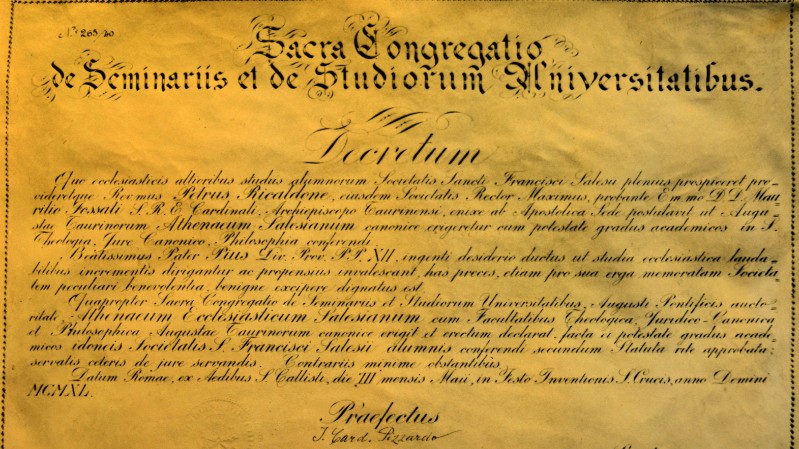 N. 265/40
Sacra Congregatio
de Seminariis et de Studiorum Universitatibus.
Decretum
Quo ecclesiasticis altioribus studiis alumnorum Societatis Sancti Francisci Salesii plenius prospiceret pro-
videretque Rev.mus Petrus Ricaldone, eiusdem Societatis Rector Maximus, probante Em.mo D. D. Mau-
rilio Fossati S. R. E. Cardinali, Archiepiscopo Taurinensi, enixe ab Apostolica Sede postulavit ut Augu-
stae Taurinorum Athenaeum Salesianum canonice erigeretur cum potestate gradus academicos in S.
Theologia, Jure Canonico, Philosophia conferendi.
Beatissimus Pater Pius Div. Prov. P.P. XII, ingenti desiderio ductus ut studia ecclesiastica lauda-
bilibus incrementis dirigantur ac propensius invalescant, has preces, etiam pro sua erga memoratam Societa-
tem peculiari benevolentia, benigne excipere dignatus est.
Quapropter Sacra Congregatio de Seminariis et Studiorum Universitatibus, Augusti Pontificis aucto-
ritate, Athenaeum Ecclesiasticum Salesianum cum Facultatibus Theologica, Juridico-Canonica
et Philosophica Augustae Taurinorum canonice erigit et erectum declarat, facta ei potestate gradus acade-
micos idoneis Societatis S. Francisci Salesii alumnis conferendi secundum Statuta rite approbata;
servatis ceteris de jure servandis. Contrariis minime obstantibus.
Datum Romae, ex Aedibus S. Callisti, die III mensis Maii, in Festo Inventionis S. Crucis, anno Domini
MCMXL.
Praefectus
J. Card. Pizzardo